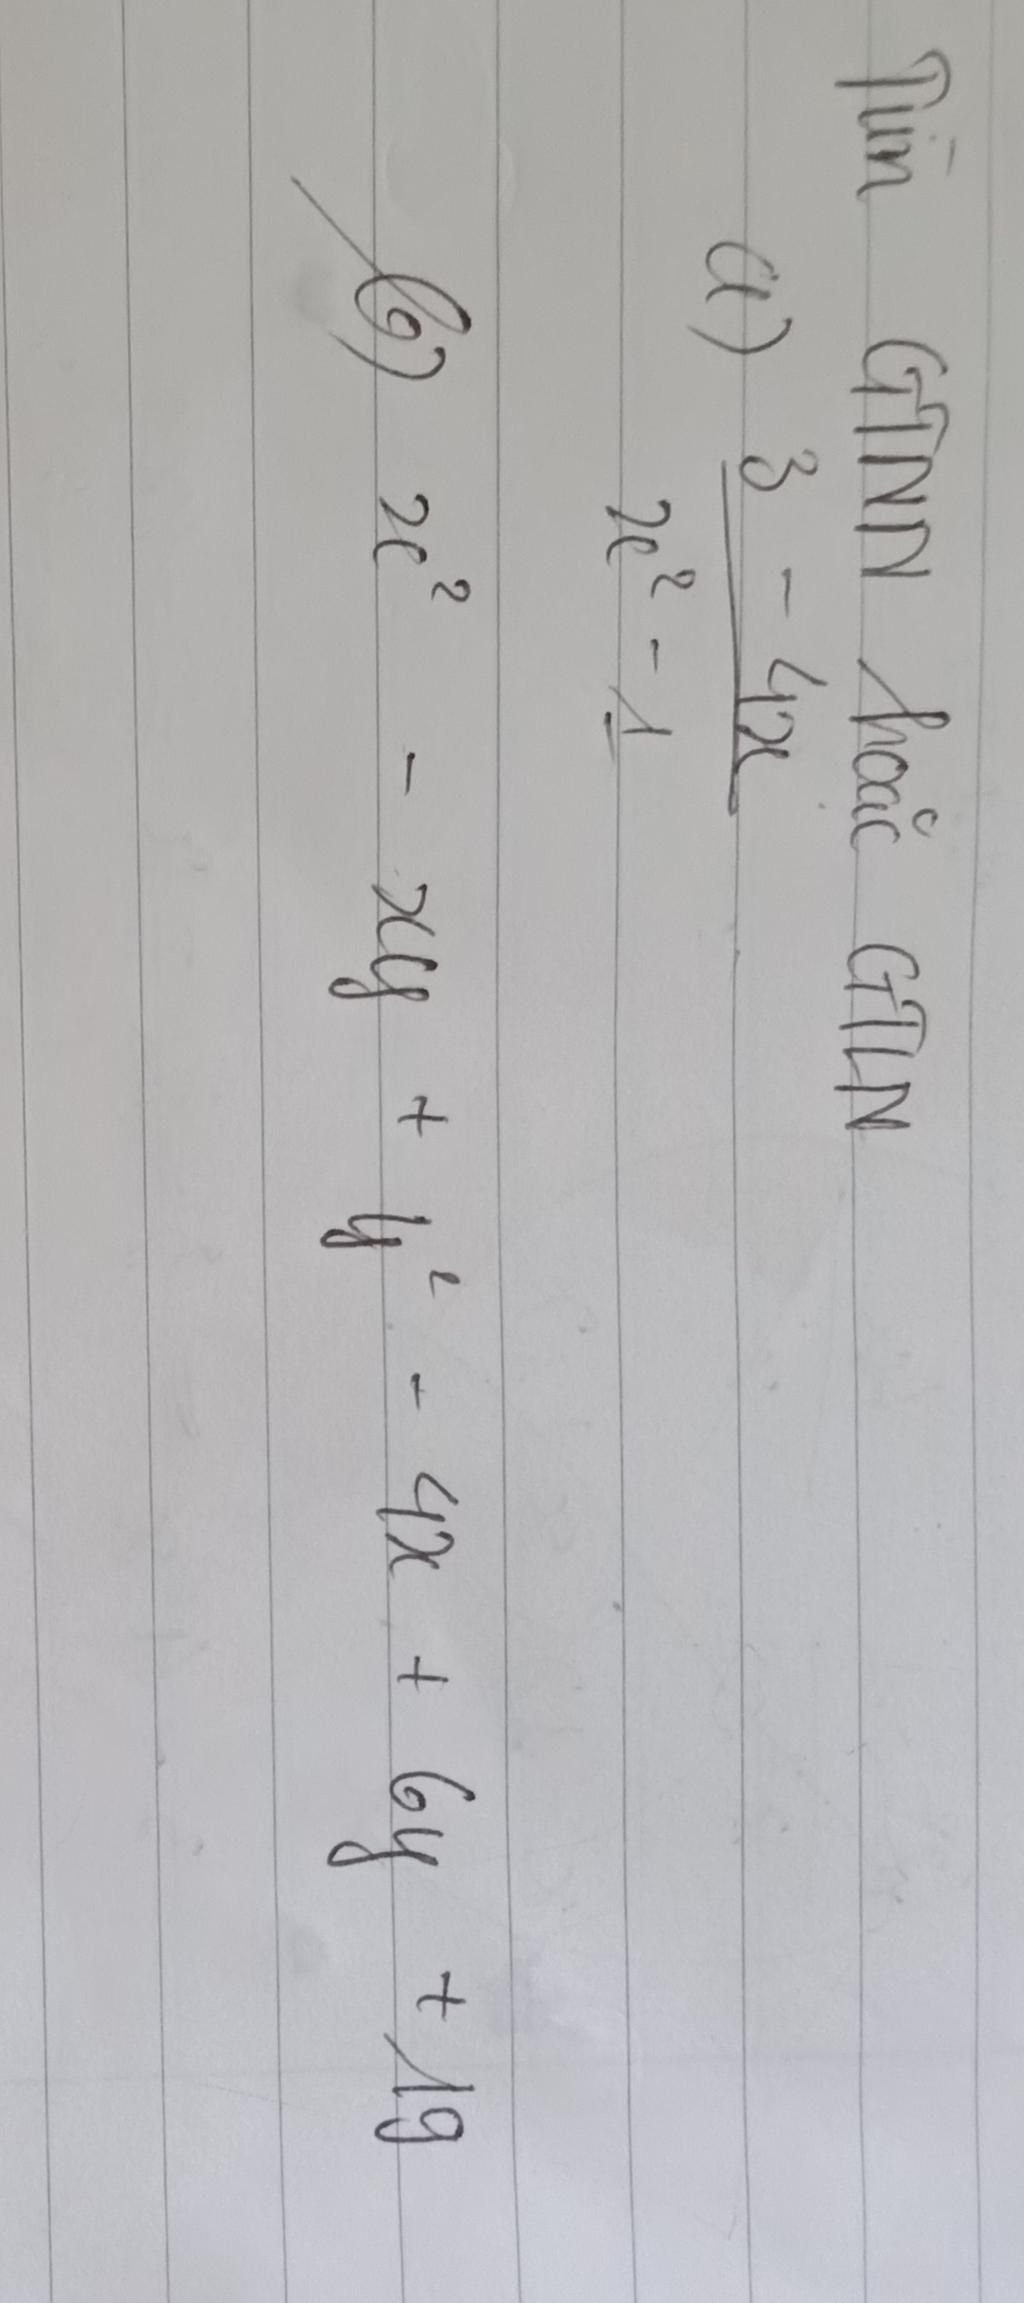 Tìm GTNN hoặc GTLN
a) 3 - 4x
x² - 1
b) x² - xy + y² - 4x + 6y + 19